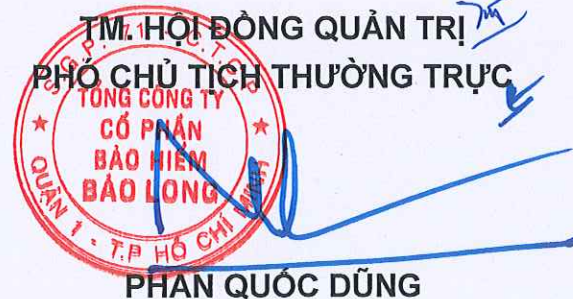 TM. HỘI ĐỒNG QUẢN TRỊ
PHÓ CHỦ TỊCH THƯỜNG TRỰC
TỔNG CÔNG TY
CỔ PHẦN
BẢO HIỂM
BẢO LONG
QUẬN 1 - T.P HỒ CHÍ MINH
PHAN QUỐC DŨNG